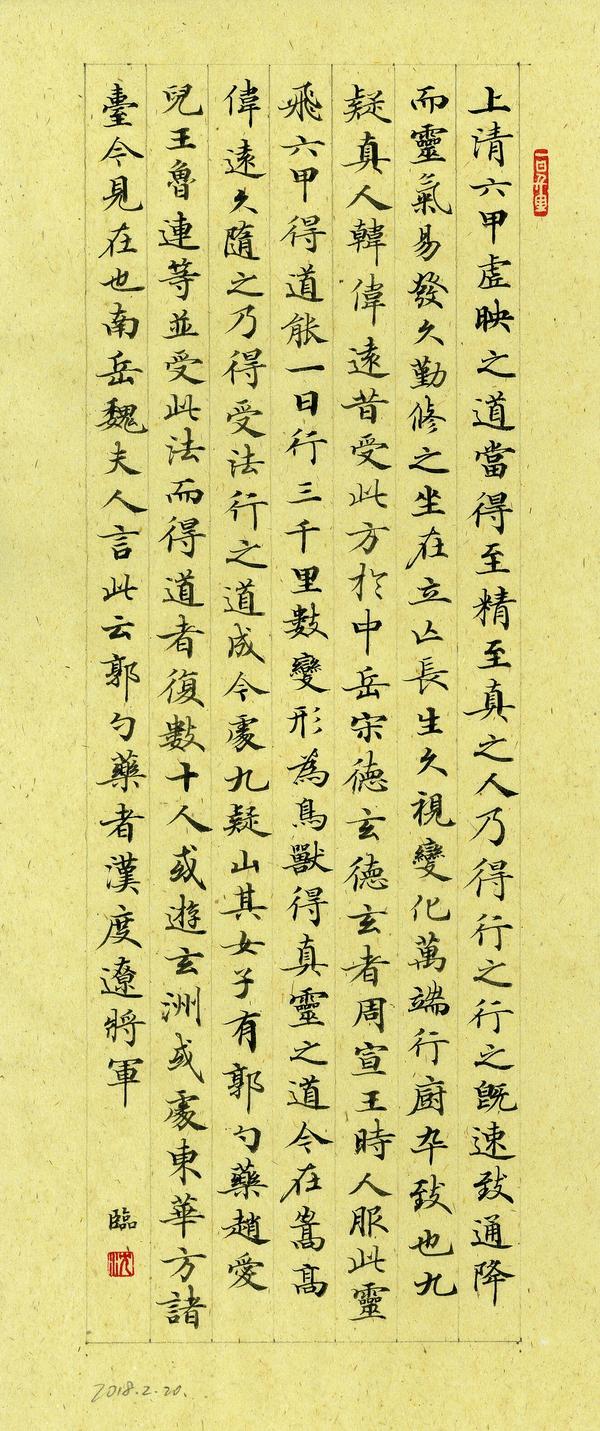 一日千里
上清六甲虛映之道當得至精至真之人乃得行之行之既速致通降
而靈氣易發久勤修之坐在立亡長生久視變化萬端行廚卒致也九
疑真人韓偉遠昔受此方於中岳宋德玄德玄者周宣王時人服此靈
飛六甲得道能一日行三千里數變形為鳥獸得真靈之道今在嵩高
偉遠久隨之乃得受法行之道成今處九疑山其女子有郭勺藥趙愛
兒王魯連等並受此法而得道者復數十人或遊玄洲或處東華方諸
臺今見在也南岳魏夫人言此云郭勺藥者漢度遼將軍
臨
沈
2018.2.20.